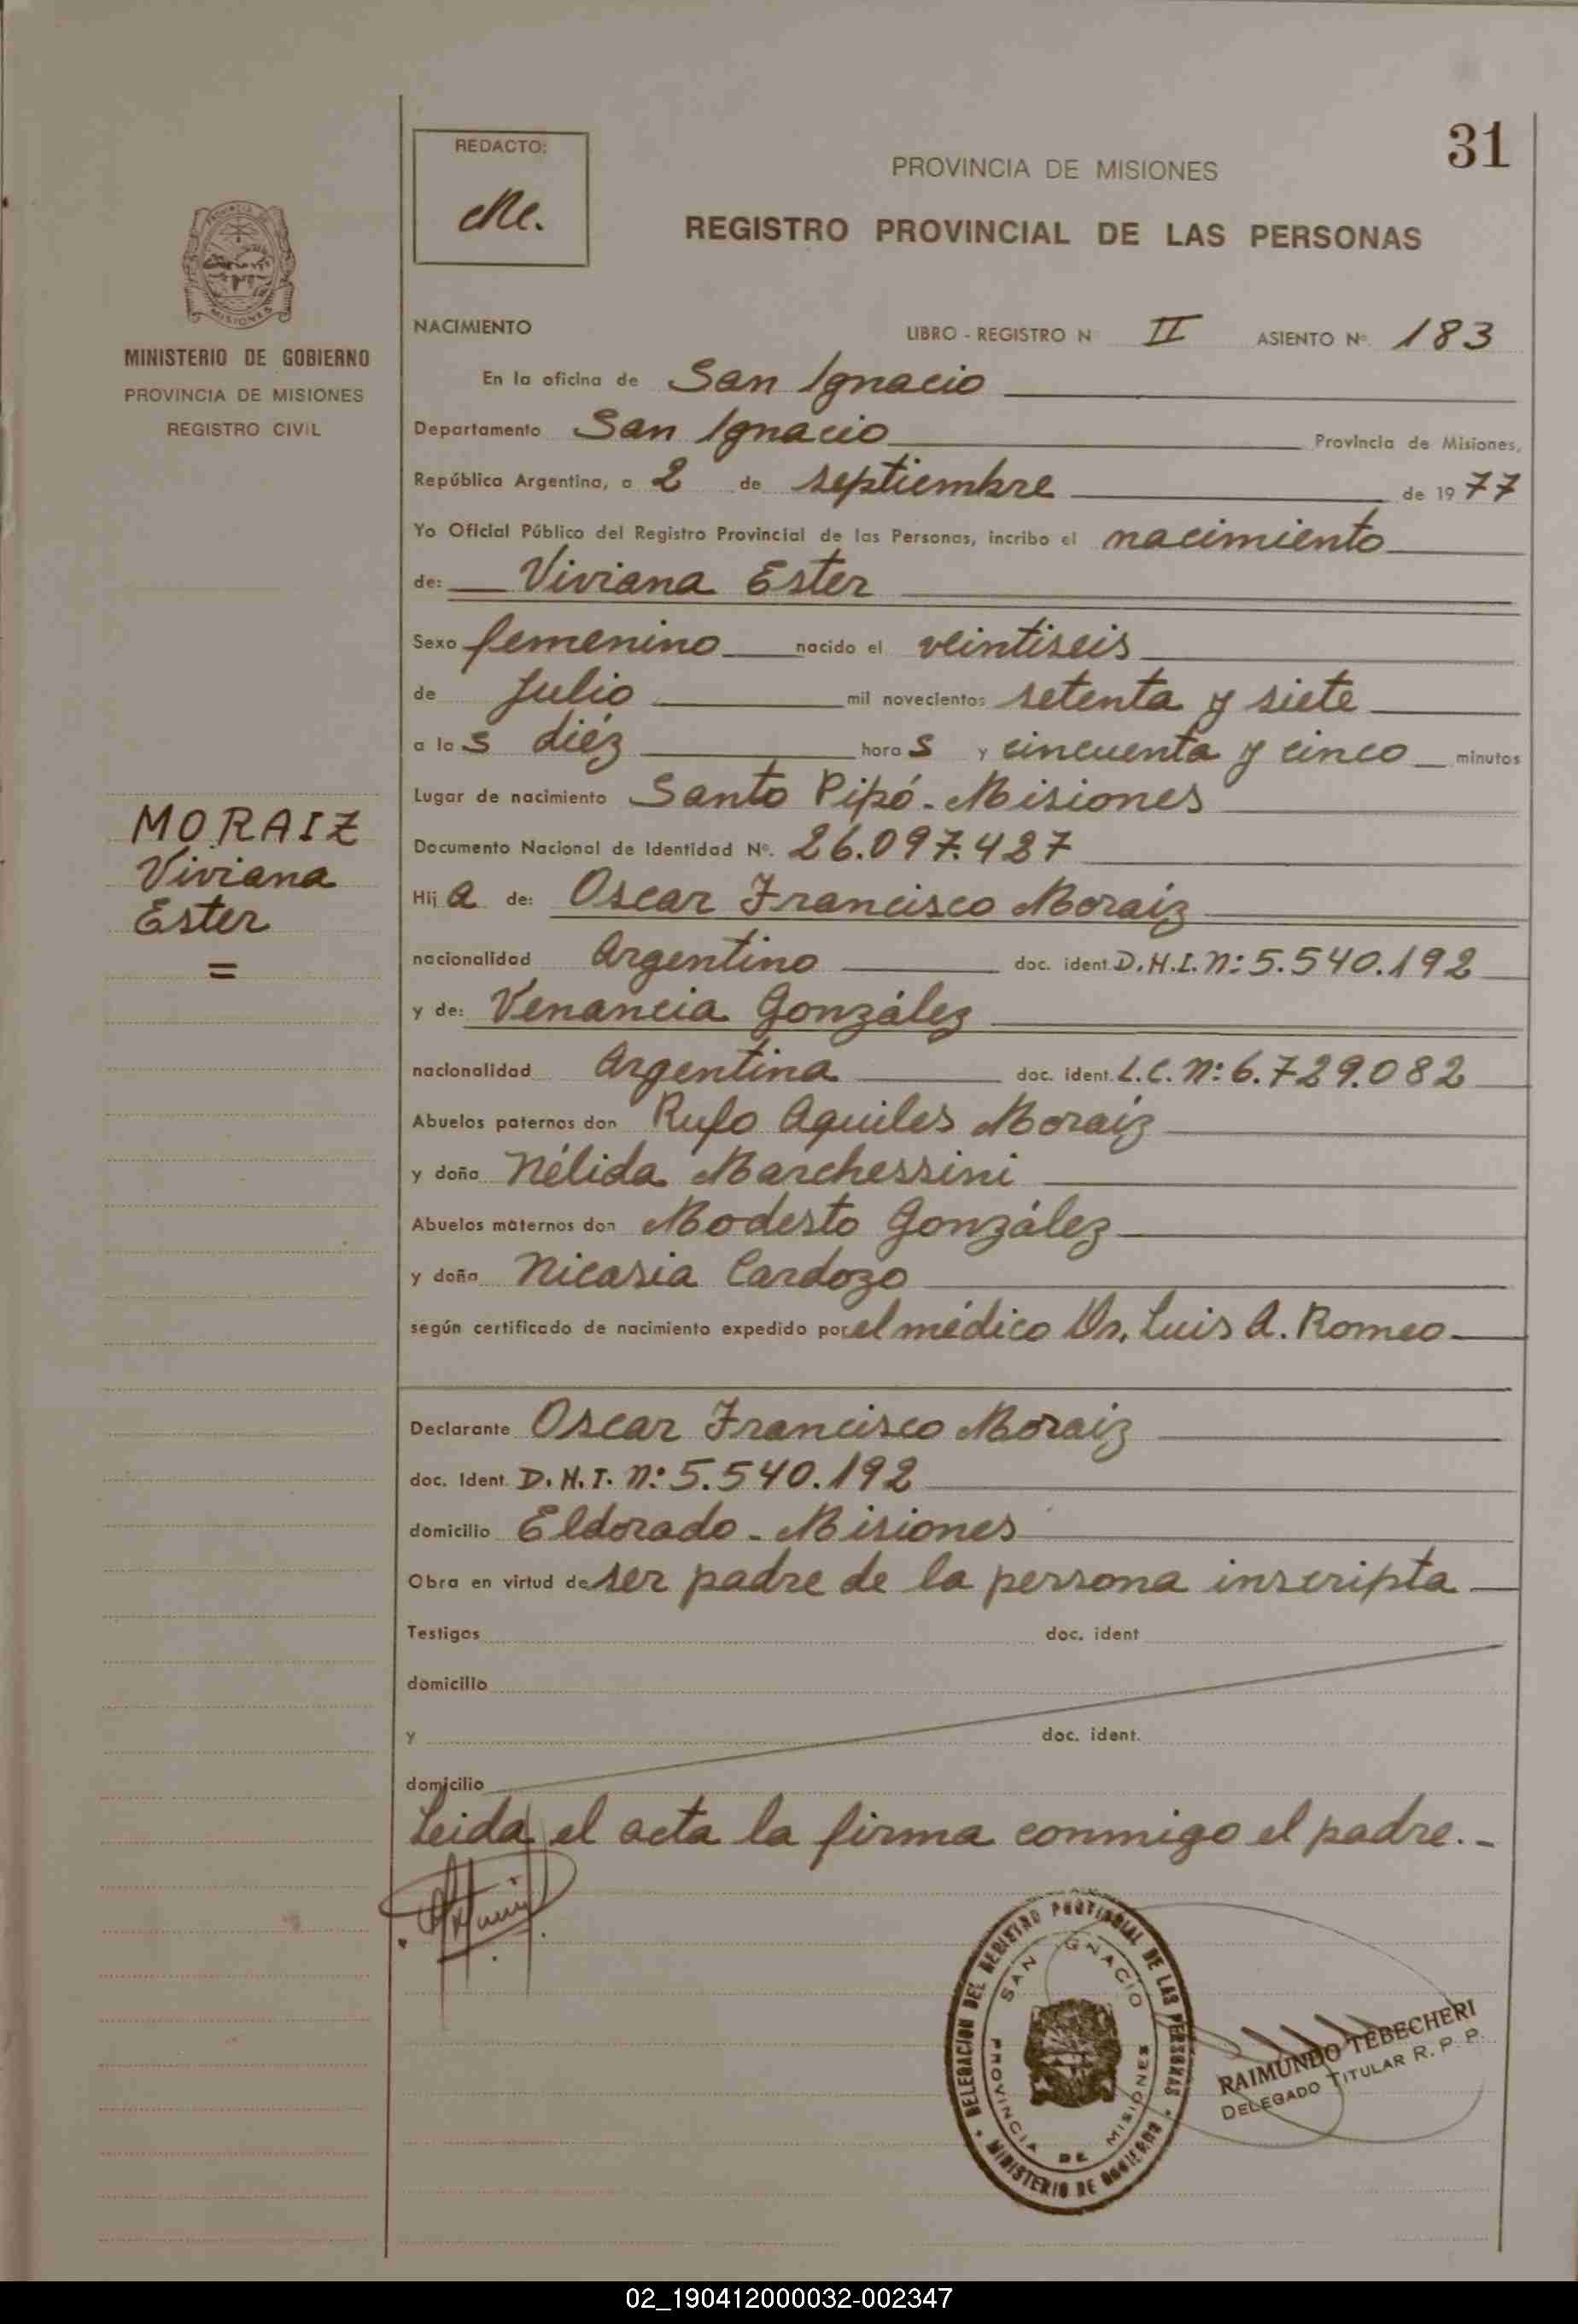 31
REDACTO:
Me.
PROVINCIA DE MISIONES
REGISTRO PROVINCIAL DE LAS PERSONAS
MINISTERIO DE GOBIERNO
PROVINCIA DE MISIONES
REGISTRO CIVIL
MORAIZ
Viviana
Ester
=
NACIMIENTO LIBRO - REGISTRO N II ASIENTO Nº. 183
En la oficina de San Ignacio
Departamento San Ignacio Provincia de Misiones,
República Argentina, a 2 de septiembre de 1977
Yo Oficial Público del Registro Provincial de las Personas, incribo el nacimiento
de: Viviana Ester
Sexo femenino nacido el veintiseis
de Julio mil novecientos setenta y siete
a las diéz horas y cincuenta y cinco minutos
Lugar de nacimiento Santo Pipó - Misiones
Documento Nacional de Identidad Nº. 26.097.427
Hija de: Oscar Francisco Moraiz
nacionalidad Argentino doc. ident. D.N.I. Nº: 5.540.192
y de: Venancia González
nacionalidad Argentina doc. ident. L.C. Nº: 6.729.082
Abuelos paternos don Rufo Aquiles Moraiz
y doña Nélida Marchessini
Abuelos maternos don Modesto González
y doña Nicasia Cardozo
según certificado de nacimiento expedido por el médico Dr. Luis A. Romeo
Declarante Oscar Francisco Moraiz
doc. Ident. D.N.I. Nº: 5.540.192
domicilio Eldorado - Misiones
Obra en virtud de ser padre de la persona inscripta
Testigos doc. ident
domicilio
y doc. ident.
domicilio
Leida el acta la firma conmigo el padre.-
DELEGACION DEL REGISTRO PROVINCIAL DE LAS PERSONAS
SAN IGNACIO
PROVINCIA DE MISIONES
MINISTERIO DE GOBIERNO
RAIMUNDO TEBECHERI
DELEGADO TITULAR R. P. P.
02_190412000032-002347